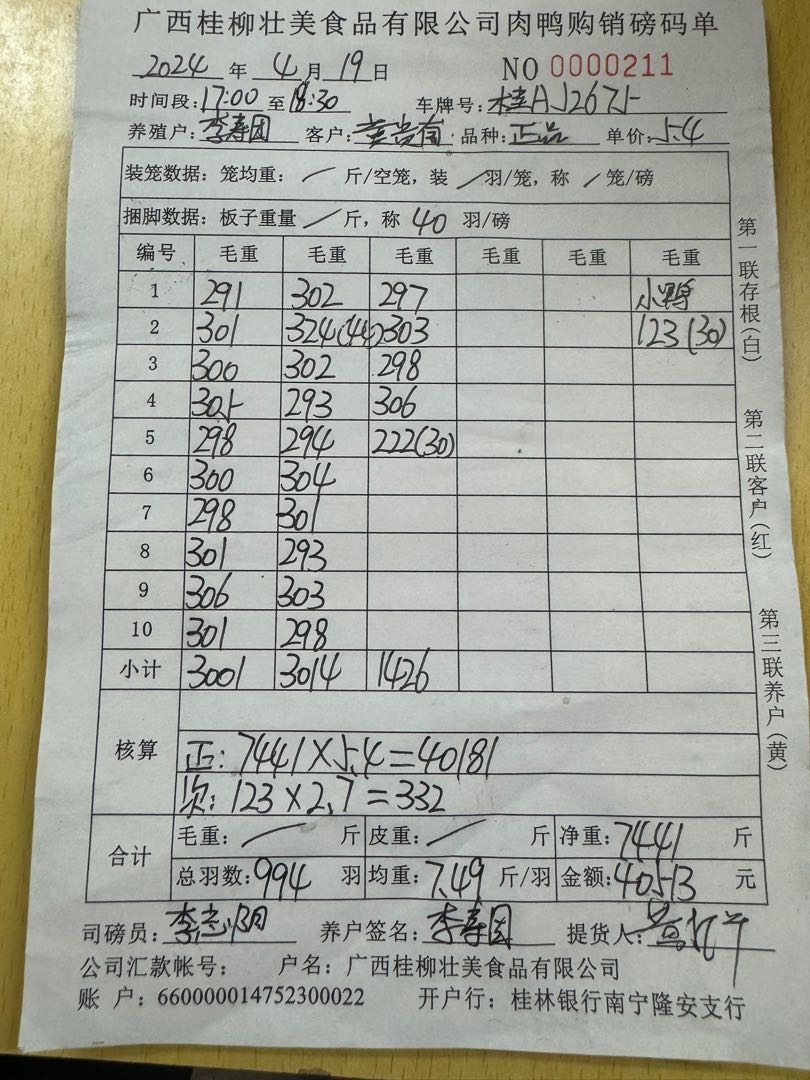 广西桂柳壮美食品有限公司肉鸭购销磅码单
2024 年 4 月 19 日 NO 0000211
时间段: 17:00 至 18:30 车牌号: 桂AJ2675
养殖户: 李寿团 客户: 品种: 正品 单价: 5.4
装笼数据: 笼均重: / 斤/空笼, 装 / 羽/笼, 称 / 笼/磅
捆脚数据: 板子重量 / 斤, 称 40 羽/磅
编号 毛重 毛重 毛重 毛重 毛重 毛重
1 291 302 297 小鸭
2 301 324(44) 303 123(30)
3 300 302 298
4 305 293 306
5 298 294 222(30)
6 300 304
7 298 301
8 301 293
9 306 303
10 301 298
小计 3001 3014 1426
核算
正: 7441×5.4=40181
次: 123×2.7=332
合计
毛重: / 斤 皮重: / 斤 净重: 7441 斤
总羽数: 994 羽 均重: 7.49 斤/羽 金额: 40513 元
司磅员: 李志阴 养户签名: 李寿团 提货人:
公司汇款帐号: 户名: 广西桂柳壮美食品有限公司
账 户: 660000014752300022 开户行: 桂林银行南宁隆安支行
第一联存根(白)
第二联客户(红)
第三联养户(黄)